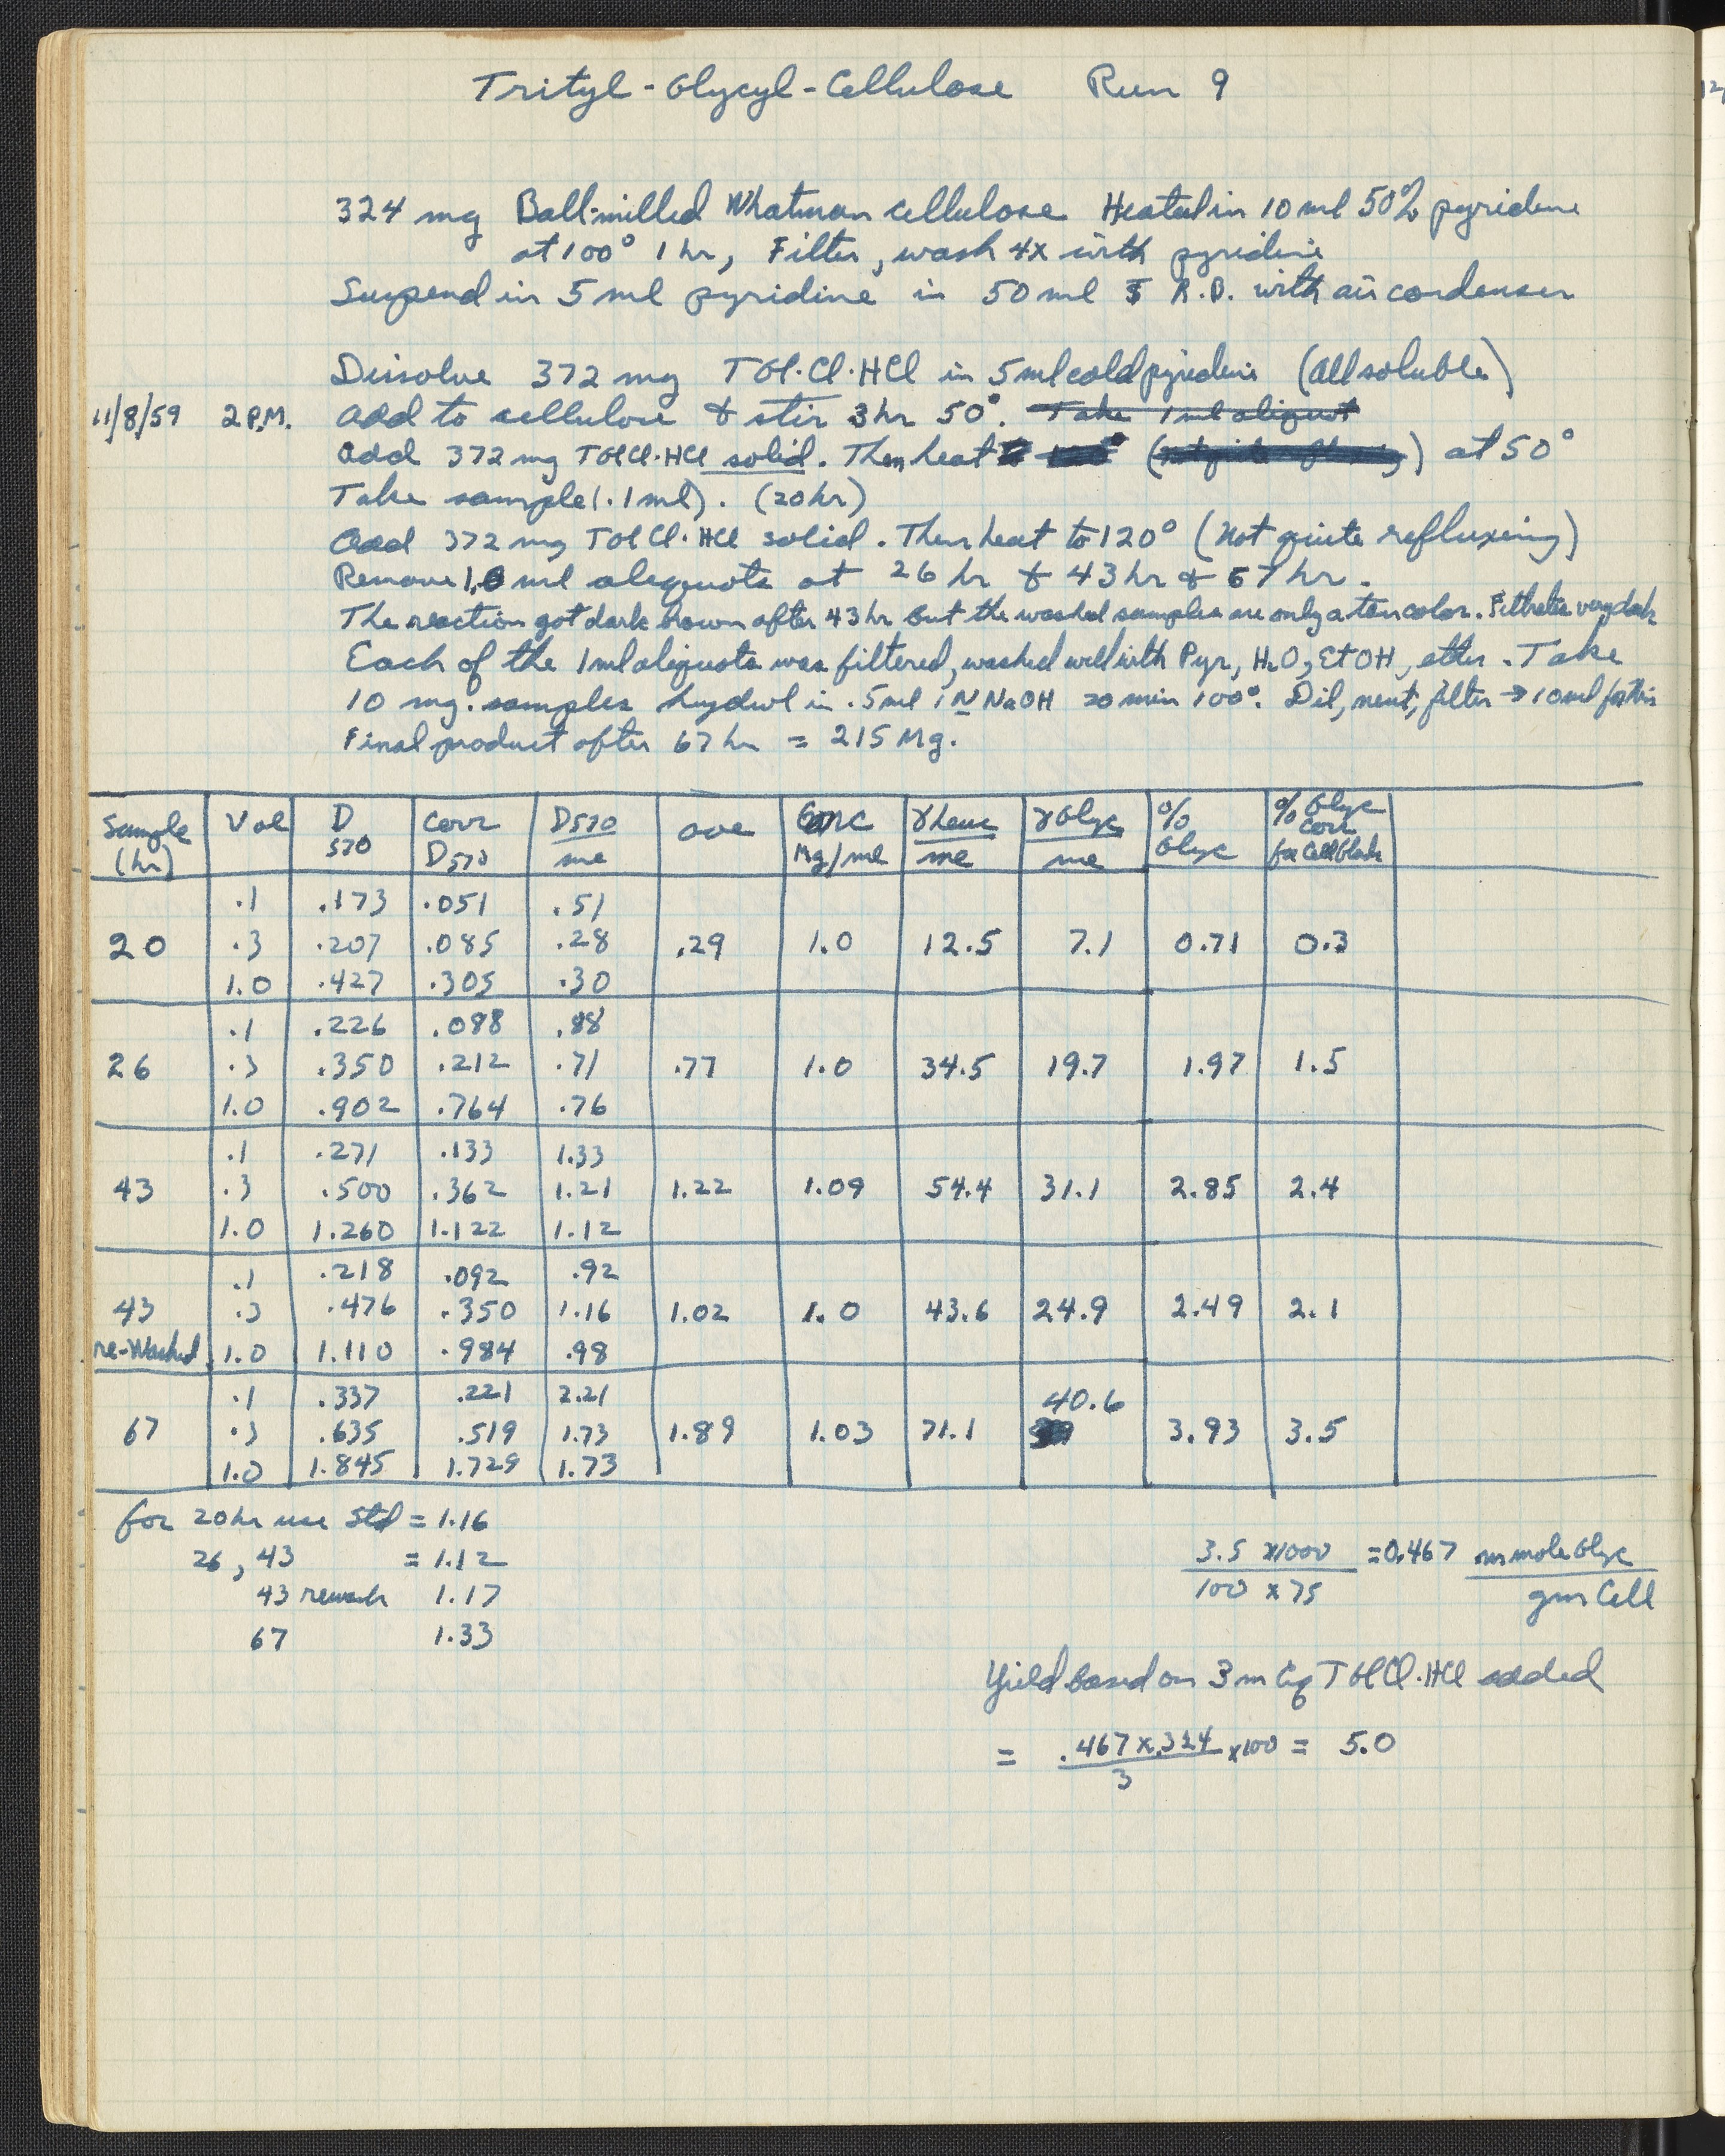 Trityl-Glycyl-Cellulose Run 9
324 mg Ball-milled Whatman cellulose Heated in 10 ml 50% pyridine
at 100° 1 hr, Filter, wash 4x with pyridine
Suspend in 5 ml pyridine in 50 ml R.B. with air condenser
Dissolve 372 mg TGl·Cl·HCl in 5 ml cold pyridine (All soluble)
11/8/59 2 P.M. Add to cellulose & stir 3 hr 50°. Take 1 ml aliquot
Add 372 mg TGlCl·HCl solid. Then heat at 50°
Take sample (.1 ml). (20 hr)
Add 372 mg TGlCl·HCl solid. Then heat to 120° (Not quite refluxing)
Remove 1.0 ml aliquots at 26 hr & 43 hr & 67 hr.
The reaction got dark brown after 43 hr but the washed samples are only a tan color. Filtrates very dark
Each of the 1 ml aliquots was filtered, washed well with Pyr, H2O, EtOH, ether. Take
10 mg. samples hydrol in .5 ml 1N NaOH 20 min 100°. Dil, neut, filter → 10 ml for
Final product after 67 hr = 215 Mg.
Sample (hr) Vol D 570 Corr D570 D570/ml ave Conc Mg/ml γ leuc/ml γ Glyc/ml % Glyc % Glyc corr for Cell blank
.1 .173 .051 .51
20 .3 .207 .085 .28 .29 1.0 12.5 7.1 0.71 0.3
1.0 .427 .305 .30
.1 .226 .088 .88
26 .3 .350 .212 .71 .77 1.0 34.5 19.7 1.97 1.5
1.0 .902 .764 .76
.1 .271 .133 1.33
43 .3 .500 .362 1.21 1.22 1.09 54.4 31.1 2.85 2.4
1.0 1.260 1.122 1.12
.1 .218 .092 .92
43 .3 .476 .350 1.16 1.02 1.0 43.6 24.9 2.49 2.1
re-Washed 1.0 1.110 .984 .98
.1 .337 .221 2.21 40.6
67 .3 .635 .519 1.73 1.89 1.03 71.1 3.93 3.5
1.0 1.845 1.729 1.73
for 20 hr use Std = 1.16
26, 43 = 1.12
43 rewash 1.17
67 1.33
3.5 x1000 / 100 x 75 = 0.467 m mole Glyc / gm Cell
Yield based on 3 m Eq TGlCl·HCl added
= .467 x .324 / 3 x100 = 5.0